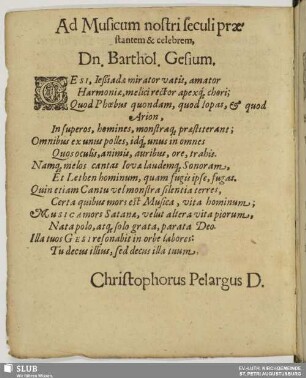 Ad Musicum nostri seculi præ
stantem & celebrem,
Dn. Barthol. Gesium.
GESI, Iessiadæ mirator vatis, amator
Harmoniæ, melici rector apexq́, chori;
Quod Phœbus quondam, quod Iopas, & quod
Arion,
In superos, homines, monstraq́, præstiterant;
Omnibus ex unus polles, idq́, unus in omnes
Quos oculis, animis, auribus, ore, trahis.
Namq́, melos cantas Iova laudemq́, Sonoram,
Et Lethen hominum, quam fugit ipse, fugas.
Quin etiam Cantu vel monstra silentia terres,
Certa quibus mors est Musica, vita hominum;
MUSICA mors Satanæ, velut altera vita piorum,
Nata polo, atq́, solo grata, parata Deo.
Illa tuos GESI resonabit in orbe labores:
Tu decus illius, sed decus illa tuum.
Christophorus Pelargus D.
SLUB
Wir führen Wissen.
EV.-LUTH. KIRCHGEMEINDE
ST. PETRI AUGUSTUSBURG